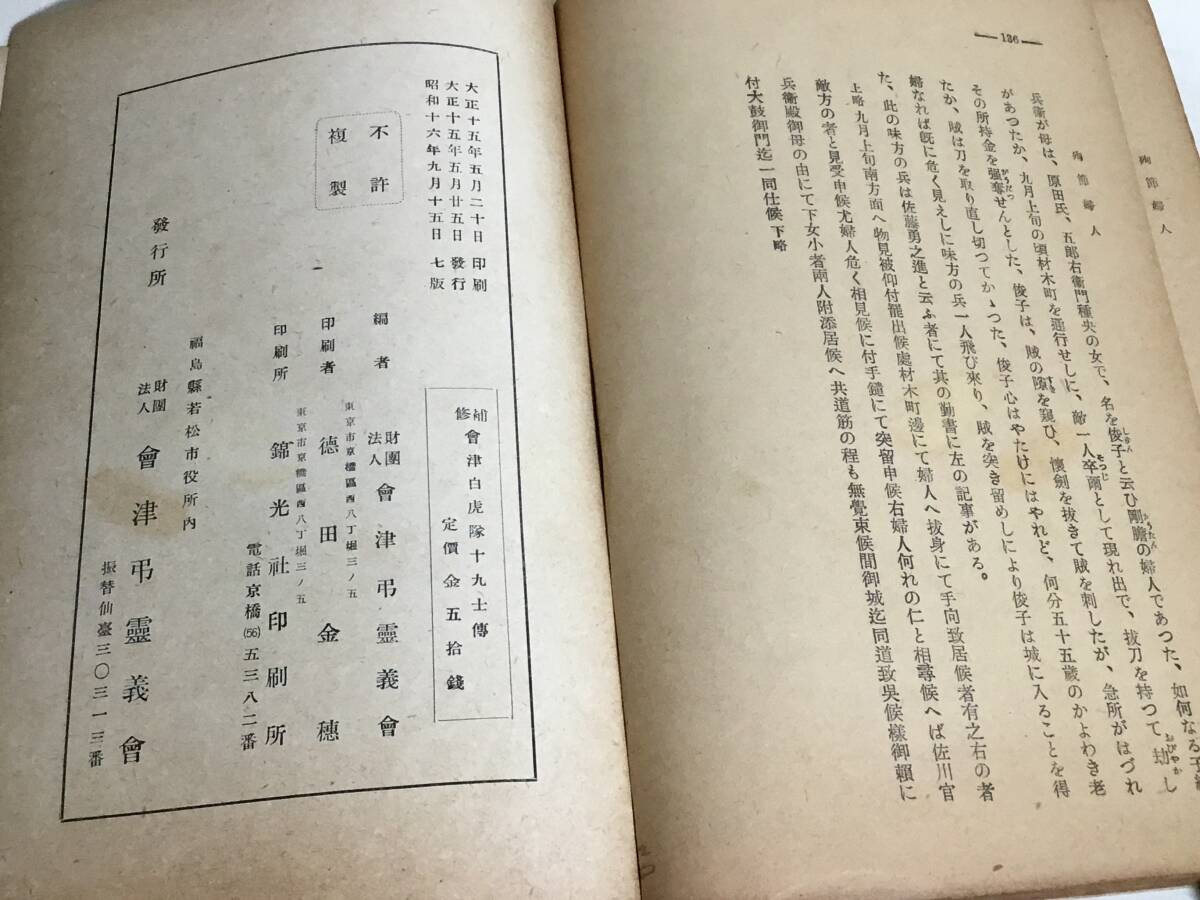 殉節婦人
— 136 —
殉節婦人
兵衛が母は、原田氏、五郎右衛門種央の女で、名を俊子と云ひ剛膽の婦人であつた、如何なる子細
があつたか、九月上旬の頃材木町を通行せしに、敵一人卒爾として現れ出で、拔刀を持つて劫し
その所持金を强奪せんとした、俊子は、賊の隙を窺ひ、懷劍を拔きて賊を刺したが、急所がはづれ
たか、賊は刀を取り直し切つてかゝつた、俊子心はやたけにはやれど、何分五十五歲のかよわき老
婦なれば旣に危く見えしに味方の兵一人飛び來り、賊を突き留めしにより俊子は城に入ることを得
た、此の味方の兵は佐藤勇之進と云ふ者にて其の勤書に左の記事がある。
上略 九月上旬南方面へ物見被仰付罷出候處材木町邊にて婦人へ拔身にて手向致居候者有之右の者
敵方の者と見受申候尤婦人危く相見候に付手鑓にて突留申候右婦人何れの仁と相尋候へば佐川官
兵衛殿御母の由にて下女小者兩人附添居候へ共道筋の程も無覺束候間御城迄同道致吳候樣御賴に
付大鼓御門迄一同仕候 下略
大正十五年五月二十日 印刷
大正十五年五月廿五日 發行
昭和十六年九月十五日 七版
不許
複製
補修 會津白虎隊十九士傳
定價金五拾錢
編者 財團法人 會津弔靈義會
東京市京橋區西八丁堀三ノ五
印刷者 德田金穗
東京市京橋區西八丁堀三ノ五
印刷所 錦光社印刷所
電話京橋(56)五三八二番
福島縣若松市役所內
發行所 財團法人 會津弔靈義會
振替仙臺三〇三一三番